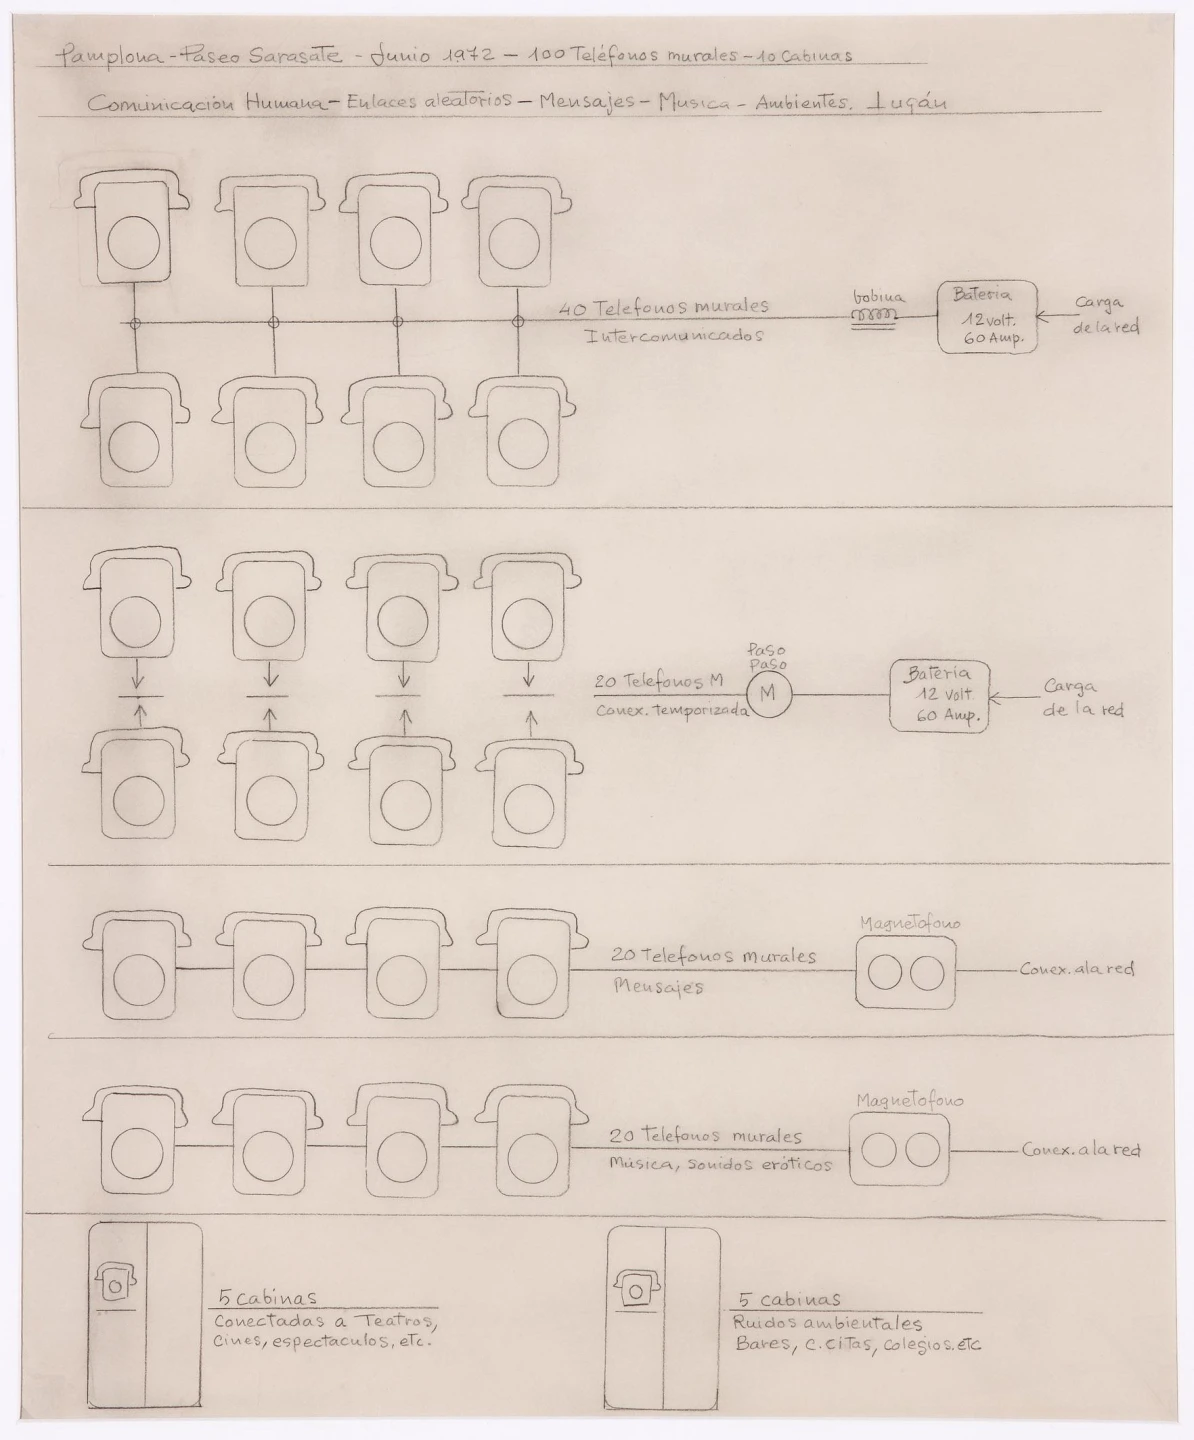 Pamplona - Paseo Sarasate - Junio 1972 - 100 Teléfonos murales - 10 Cabinas
Comunicación Humana - Enlaces aleatorios - Mensajes - Musica - Ambientes. Lugán
40 Telefonos murales
Intercomunicados
bobina
Bateria
12 volt.
60 Amp.
Carga
de la red
20 Telefonos M
Conex. temporizada
Paso
Paso
M
Bateria
12 Volt
60 Amp.
Carga
de la red
20 Telefonos murales
Mensajes
Magnetofono
Conex. a la red
20 Telefonos murales
Música, sonidos eróticos
Magnetofono
Conex. a la red
5 cabinas
Conectadas a Teatros,
Cines, espectaculos, etc.
5 cabinas
Ruidos ambientales
Bares, c. citas, colegios. etc